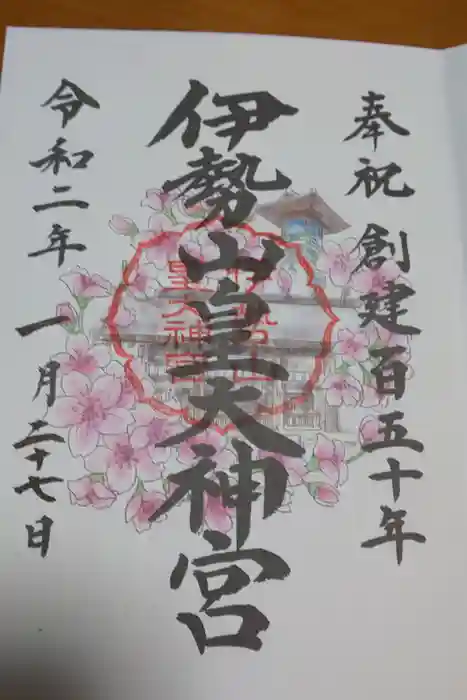 奉祝 創建百五十年
伊勢山皇大神宮
令和二年 一月二十七日
伊勢山
皇大神宮